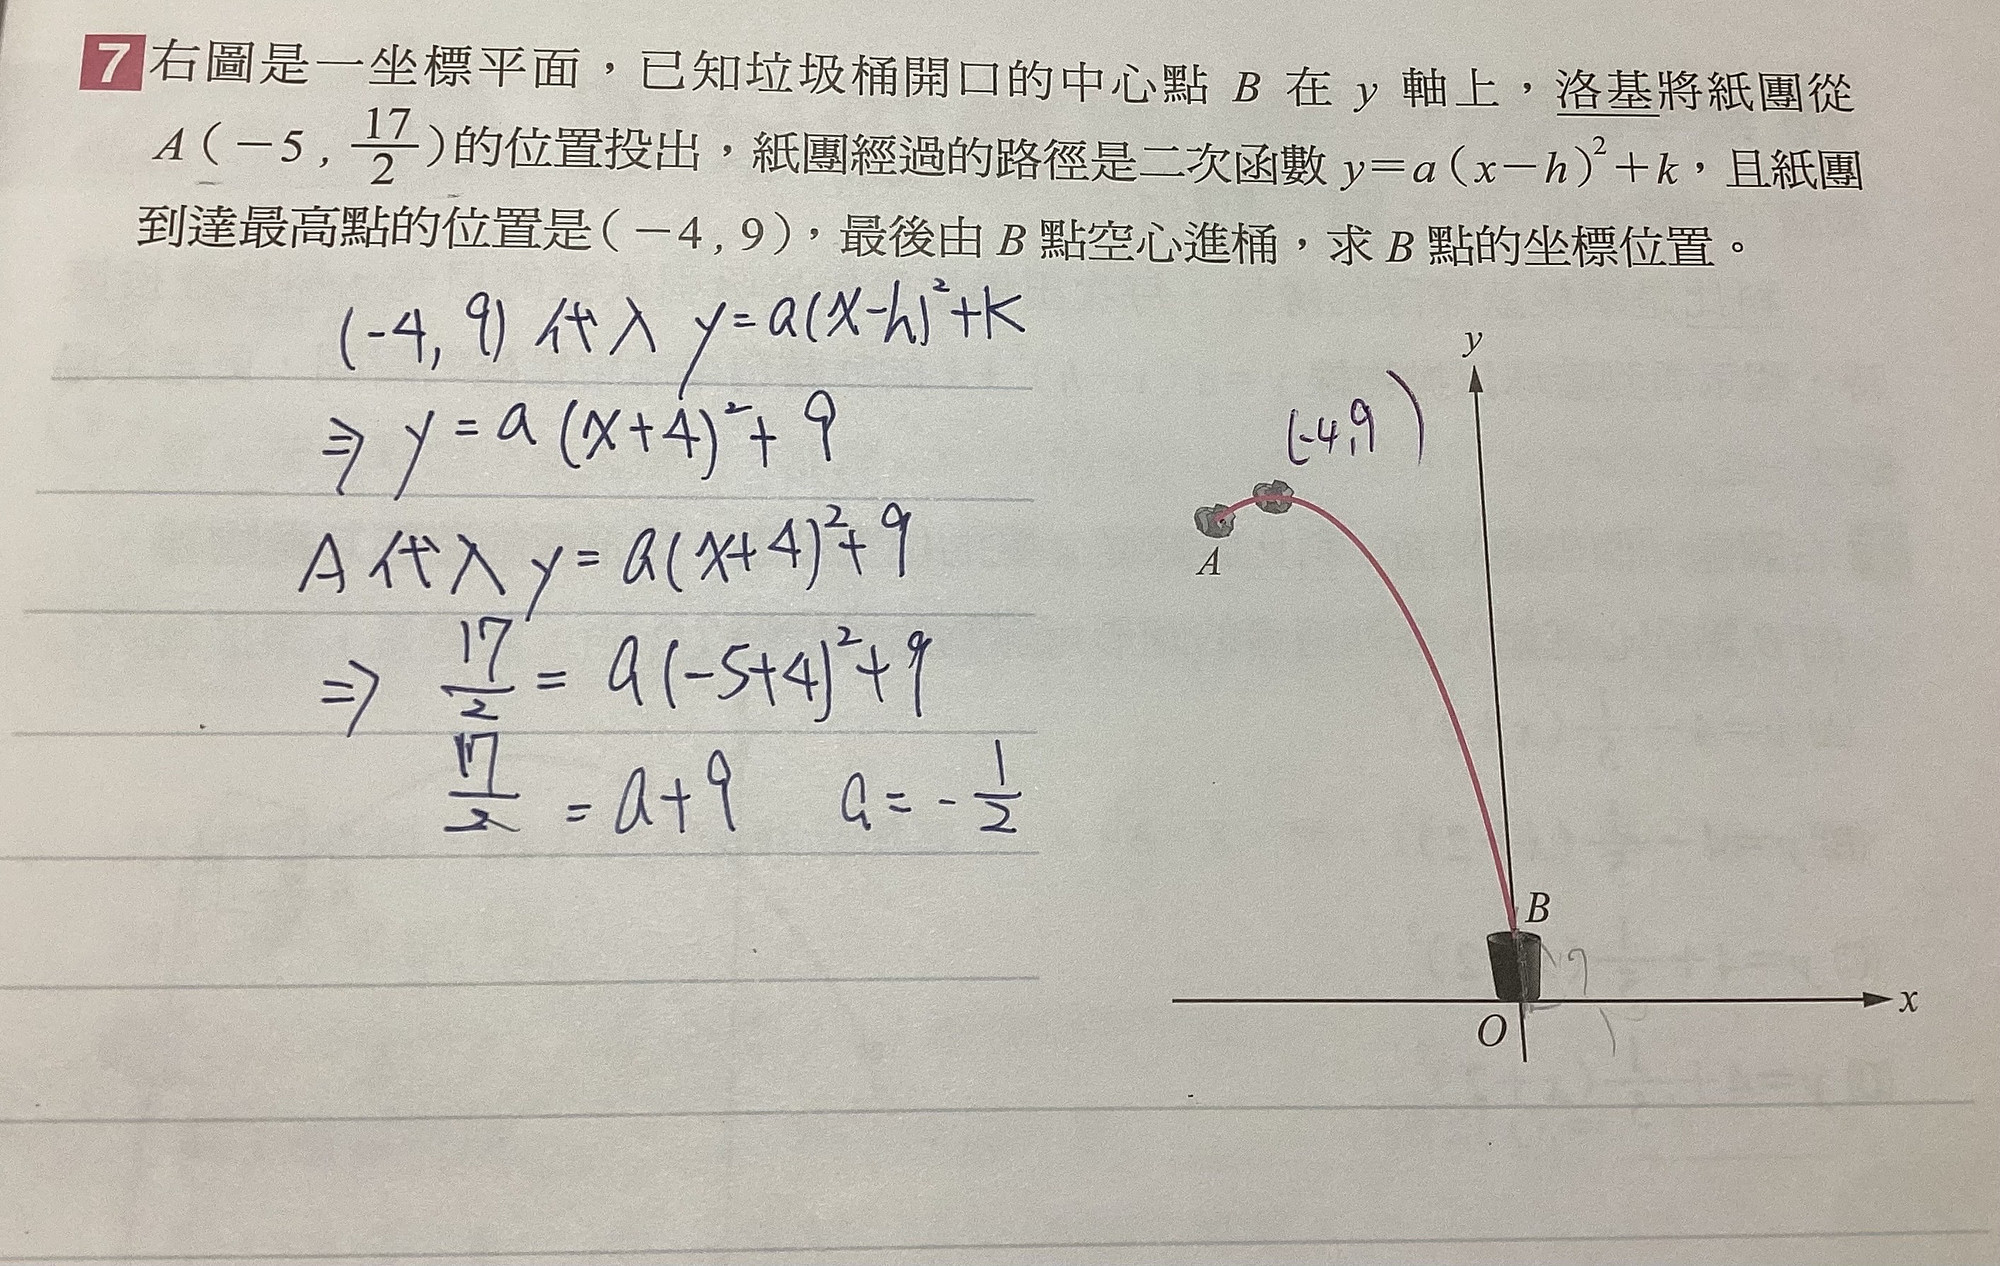 7 右圖是一坐標平面，已知垃圾桶開口的中心點 B 在 y 軸上，洛基將紙團從
A（－5 , 17/2）的位置投出，紙團經過的路徑是二次函數 y＝a（x－h）²＋k，且紙團
到達最高點的位置是（－4 , 9），最後由 B 點空心進桶，求 B 點的坐標位置。
(-4, 9) 代入 y=a(x-h)²+k
⇒ y = a (x+4)²+ 9
A 代入 y = a(x+4)²+9
⇒ 17/2 = a(-5+4)²+9
17/2 = a+9 a = -1/2
y
(-4,9)
A
B
x
O